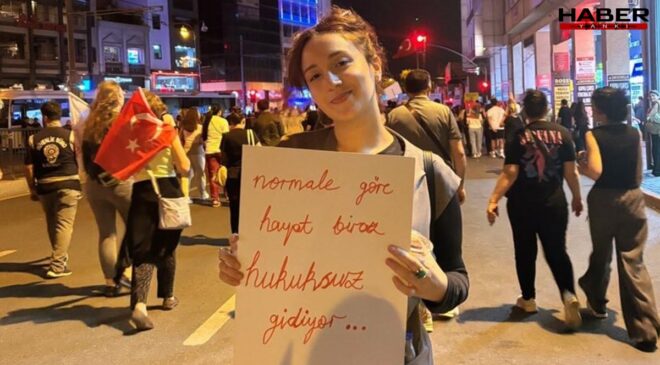 HABER
YANKI
normale göre
hayat biraz
hukuksuz
gidiyor...